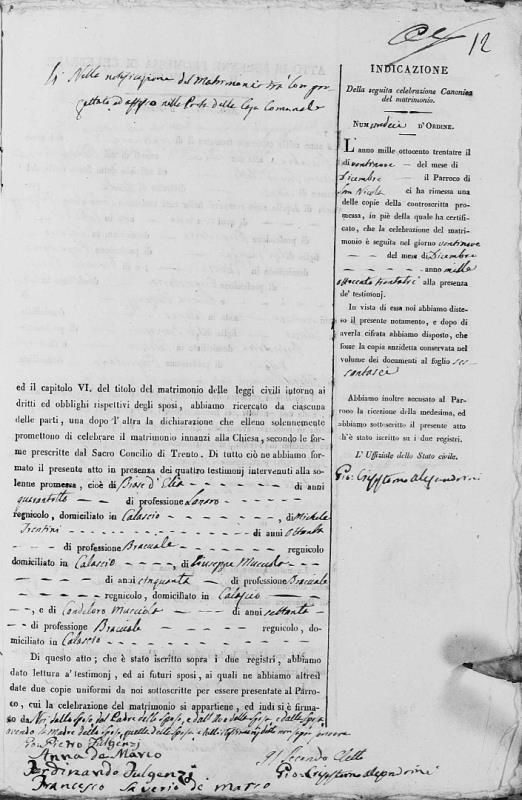 12
4 Nella notificazione del Matrimonio
affissa nelle Porte della Casa Comunale
ed il capitolo VI. del titolo del matrimonio delle leggi civili intorno ai
dritti ed obblighi rispettivi degli sposi, abbiamo ricercato da ciascuna
delle parti, una dopo l'altra la dichiarazione che elleno solennemente
promettono di celebrare il matrimonio innanzi alla Chiesa, secondo le for-
me prescritte dal Sacro Concilio di Trento. Di tutto ciò ne abbiamo for-
mato il presente atto in presenza dei quattro testimonj intervenuti alla so-
lenne promessa, cioè di Biase d'Elia di anni
quarantotto di professione Lanaro
regnicolo, domiciliato in Calascio, di Michele
Trentini di anni ottanta
di professione Bracciale regnicolo
domiciliato in Calascio, di Giuseppe Mucciolo
di anni cinquanta di professione Bracciale
regnicolo, domiciliato in Calascio
, e di Candeloro Mucciolo di anni settanta
di professione Bracciale regnicolo, do-
miciliato in Calascio
Di questo atto; che è stato iscritto sopra i due registri, abbiamo
dato lettura a' testimonj, ed ai futuri sposi, ai quali ne abbiamo altresì
date due copie uniformi da noi sottoscritte per essere presentate al Parro-
co, cui la celebrazione del matrimonio si appartiene, ed indi si è firma-
to da Noi, dallo Sposo, dal Padre dello Sposo, e dall'Avo della Sposa, e dalla Sposa
avendo la Madre dello Sposo, quella della Sposa e
Piero Fulgenzi
Anna de Marco
Ferdinando Fulgenzi
Francesco Saverio de Marco
Gio: Crisostomo Alepandrini
INDICAZIONE
Della seguita celebrazione Canonica
del matrimonio.
Num undeci d'Ordine.
L'anno mille ottocento trentatre il
dì ventinove del mese di
Dicembre il Parroco di
San Nicola ci ha rimessa una
delle copie della controscritta pro-
messa, in piè della quale ha certifi-
cato, che la celebrazione del matri-
monio è seguita nel giorno ventinove
del mese di Dicembre
anno mille
ottocento trentatre alla presenza
de' testimonj.
In vista di essa noi abbiamo diste-
so il presente notamento, e dopo di
averla cifrata abbiamo disposto, che
fosse la copia anzidetta conservata nel
volume dei documenti al foglio ses-
santasei
Abbiamo inoltre accusato al Par-
roco la ricezione della medesima, ed
abbiamo sottoscritto il presente atto
ch'è stato iscritto su i due registri.
L' Uffiziale dello Stato civile.
Gio: Crisostomo Alepandrini